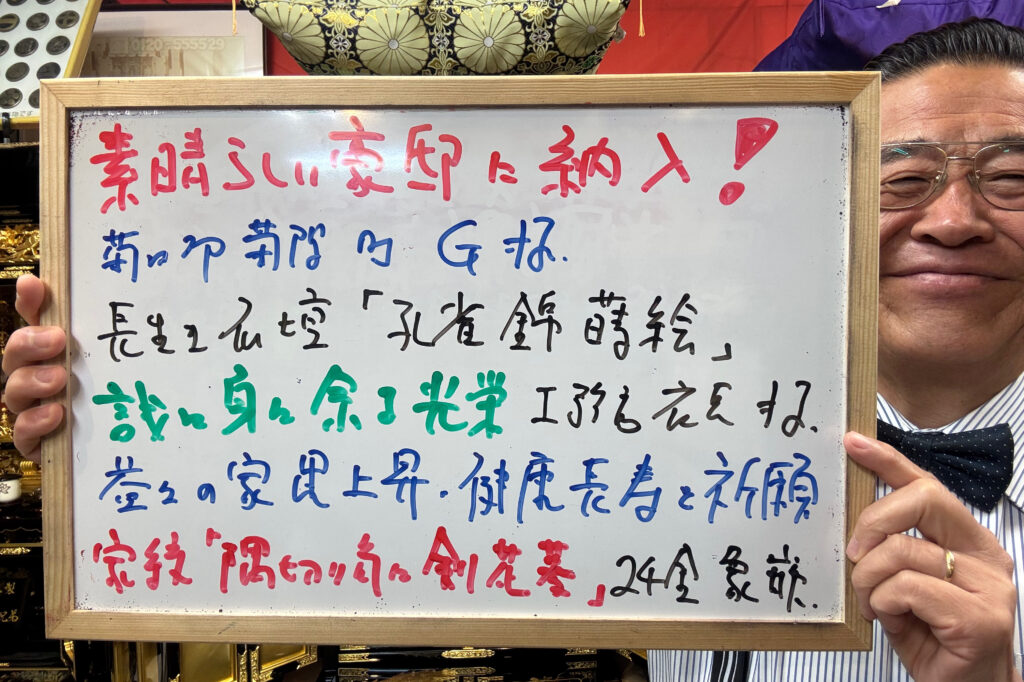 0120-555529
素晴らしい豪邸に納入!
G様.
仏壇「孔雀錦蒔絵」
誠に身に余る光栄 様.
益々の家運上昇・健康長寿を祈願
家紋「隅切り角に剣花菱」24金象嵌.